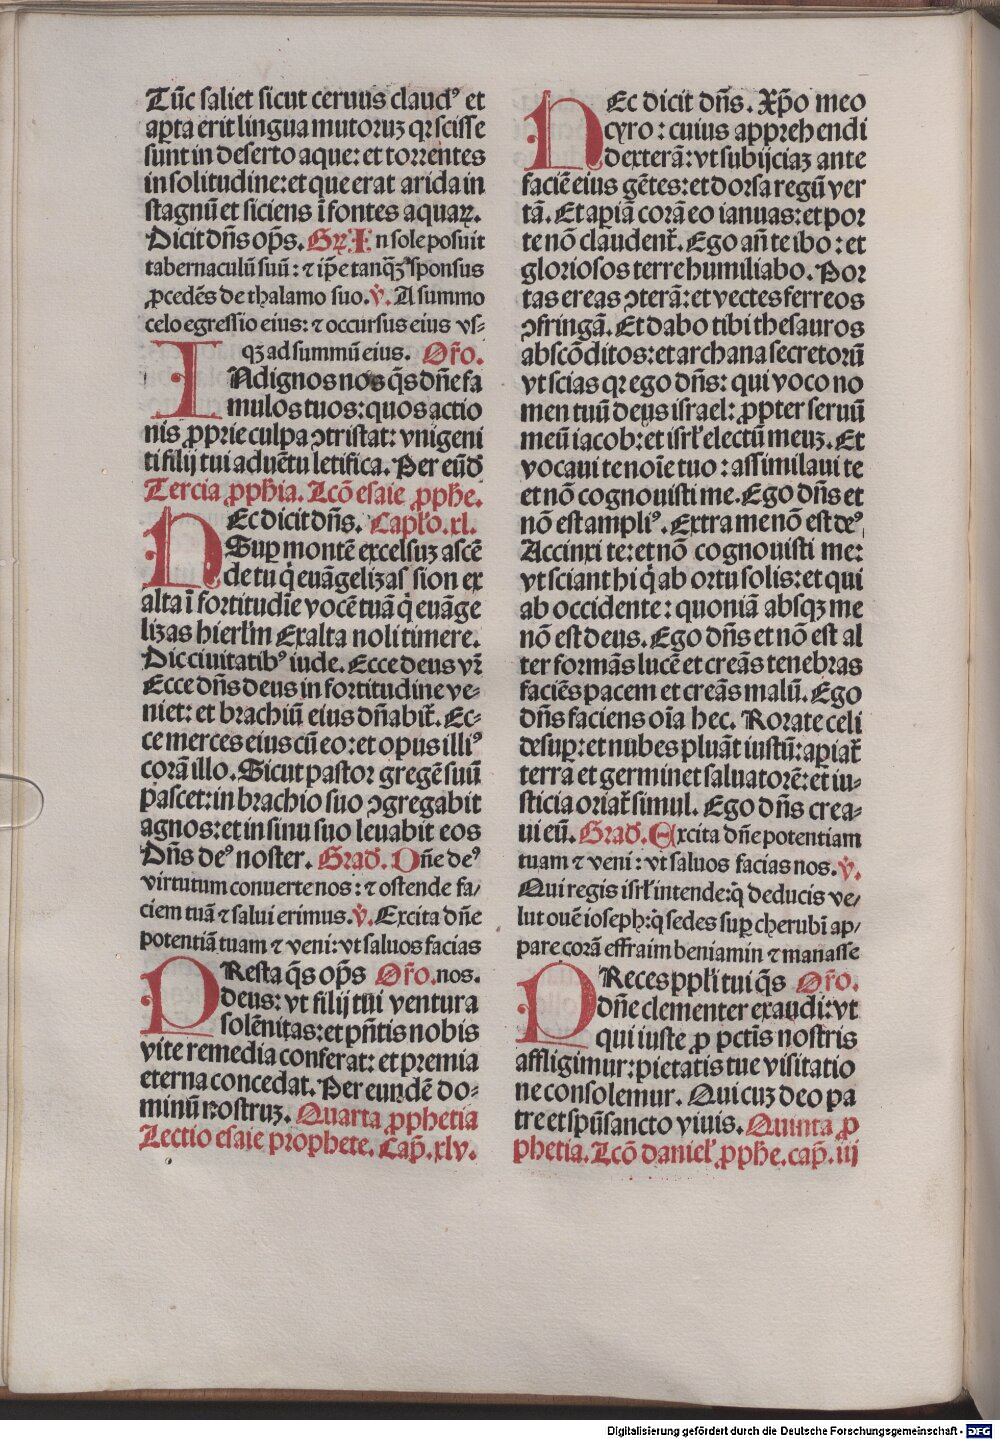 Tūc saliet sicut ceruus claudꝰ et
aꝑta erit lingua mutoruꝫ qꝛ scisse
sunt in deserto aque: et torrentes
in solitudine: et que erat arida in
stagnū et siciens ī fontes aquaꝝ.
Dicit dn̄s op̄s. Gꝝ In sole posuit
tabernaculū suū: ⁊ ip̄e tanqꝫ sponsus
ꝓcedēs de thalamo suo. ℣. A summo
celo egressio eius: ⁊ occursus eius vs⸗
qꝫ ad summū eius. Or̄o.
INdignos nos q̄s dn̄e fa
mulos tuos: quos actio
nis ꝓprie culpa ꝯtristat: vnigeni
ti filij tui aduētu letifica. Per eūd̄
Tercia ꝓph̄ia. Lcō esaie ꝓph̄e.
HEc dicit dn̄s. Capło.xl.
Suꝑ montē excelsuꝫ ascē
de tu q̇ euāgelizas sion ex
alta ī fortitudīe vocē tuā q̇ euāge
lizas hierłm Exalta noli timere.
Dic ciuitatibꝰ iude. Ecce deus vr̄
Ecce dn̄s deus in fortitudine ve⸗
niet: et brachiū eius dn̄abit̄. Ec⸗
ce merces eius cū eo: et opus illiꝰ
corā illo. Sicut pastor gregē suū
pascet: in brachio suo ꝯgregabit
agnos: et in sinu suo leuabit eos
Dn̄s deꝰ noster. Grad̄. Dn̄e deꝰ
virtutum conuerte nos: ⁊ ostende fa⸗
ciem tuā ⁊ salui erimus. ℣. Excita dn̄e
potentiā tuam ⁊ veni: vt saluos facias
PResta q̄s op̄s Or̄o. nos.
deus: vt filij tui ventura
solēnitas: et pn̄tis nobis
vite remedia conferat: et premia
eterna concedat. Per eundē do⸗
minū nostruꝫ. Quarta ꝓphetia
Lectio esaie prophete. Cap̄.xlv.
HEc dicit dn̄s. Xp̄o meo
cyro: cuius apprehendi
dexterā: vt subijciaꝫ ante
faciē eius gētes: et dorsa regū ver
tā. Et aꝑiā corā eo ianuas: et por
te nō claudent̄. Ego an̄ te ibo: et
gloriosos terre humiliabo. Por
tas ereas ꝯterā: et vectes ferreos
ꝯfringā. Et dabo tibi thesauros
abscōditos: et archana secretorū
vt scias qꝛ ego dn̄s: qui voco no
men tuū deus israel: ꝓpter seruū
meū iacob: et isrł electū meuꝫ. Et
vocaui te noīe tuo: assimilaui te
et nō cognouisti me. Ego dn̄s et
nō est ampliꝰ. Extra me nō est deꝰ
Accinxi te: et nō cognouisti me:
vt sciant hi q̇ ab ortu solis: et qui
ab occidente: quoniā absqꝫ me
nō est deus. Ego dn̄s et nō est al
ter formās lucē et creās tenebras
faciēs pacem et creās malū. Ego
dn̄s faciens oīa hec. Rorate celi
desuꝑ: et nubes pluāt iustū: aꝑiat̄
terra et germinet saluatorē: et iu⸗
sticia oriat̄ simul. Ego dn̄s crea⸗
ui eū. Grad̄. Excita dn̄e potentiam
tuam ⁊ veni: vt saluos facias nos. ℣.
Qui regis isrł intende: q̇ deducis ve⸗
lut ouē ioseph: q̇ sedes suꝑ cherubī ap⸗
pare corā effraim beniamin ⁊ manasse
PReces ppłi tui q̄s Or̄o.
dn̄e clementer exaudi: vt
qui iuste ꝓ pctīs nostris
affligimur: pietatis tue visitatio
ne consolemur. Qui cuꝫ deo pa
tre et spū sancto viuis. Quinta ꝓ
phetia. Lcō danieł ꝓph̄e. cap̄.iij
Digitalisierung gefördert durch die Deutsche Forschungsgemeinschaft - DFG